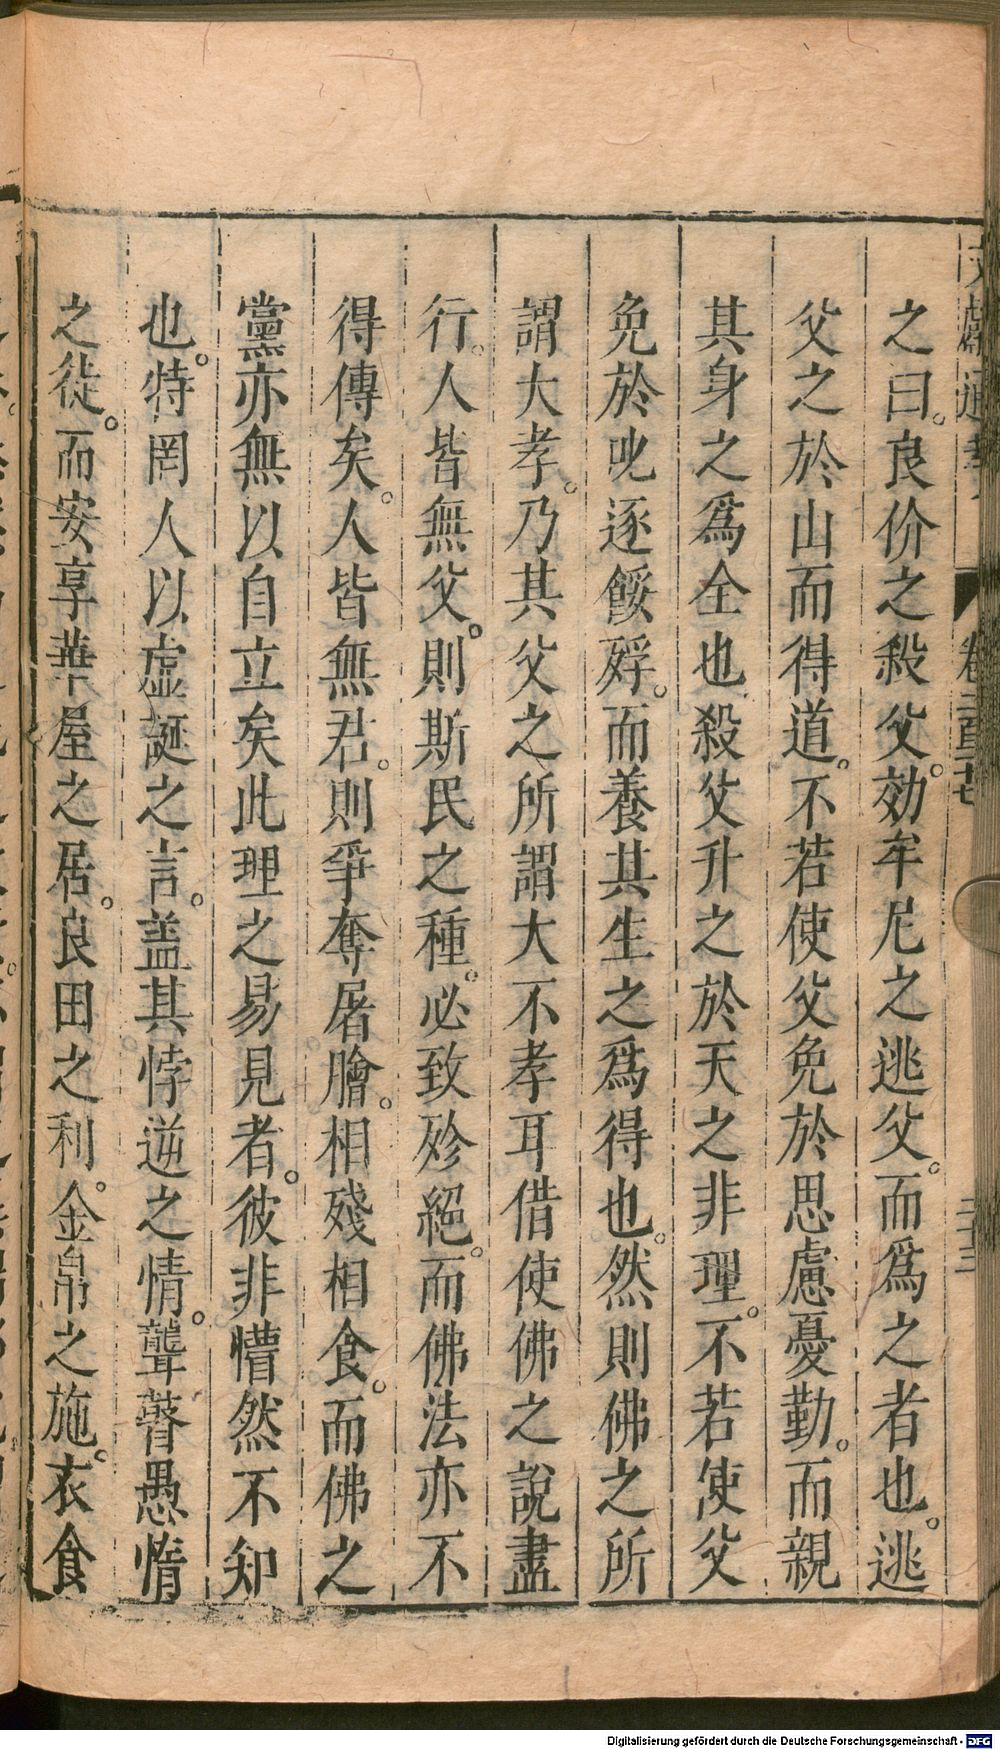 文獻通考 卷二百廿七 二十三
之曰。良价之殺父。効牟尼之逃父。而爲之者也。逃
父之於山而得道。不若使父免於思慮憂勤。而親
其身之爲全也殺父升之於天之非理。不若使父
免於叱逐餒殍。而養其生之爲得也。然則佛之所
謂大孝。乃其父之所謂大不孝耳借使佛之說盡
行。人皆無父。則斯民之種。必致殄絕。而佛法亦不
得傳矣。人皆無君。則爭奪屠膾。相殘相食。而佛之
黨亦無以自立矣此理之易見者。彼非懵然不知
也。特罔人以虛誕之言。盖其悖逆之情。聾瞽愚惰
之徒。而安享華屋之居。良田之利。金帛之施。衣食
Digitalisierung gefördert durch die Deutsche Forschungsgemeinschaft - DFG